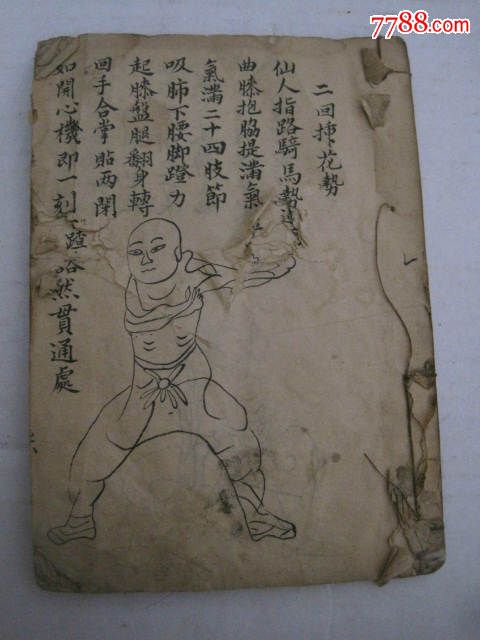 7788.com
二回揷花勢
仙人指路騎馬勢
曲膝抱脇提滿氣
氣滿二十四肢節
吸肺下腰脚蹬力
起膝盤腿翻身轉
回手合掌貼兩閉
如開心機即一刻
蹅然貫通處